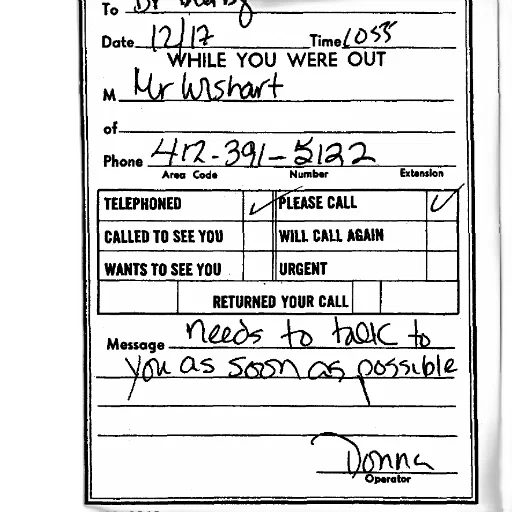 To Dr
Date 12/17 Time 1055
WHILE YOU WERE OUT
M Mr Wishart
of
Phone 412-391-5122
Area Code Number Extension
TELEPHONED ✓ PLEASE CALL ✓
CALLED TO SEE YOU WILL CALL AGAIN
WANTS TO SEE YOU URGENT
RETURNED YOUR CALL
Message needs to talk to
you as soon as possible
Donna
Operator